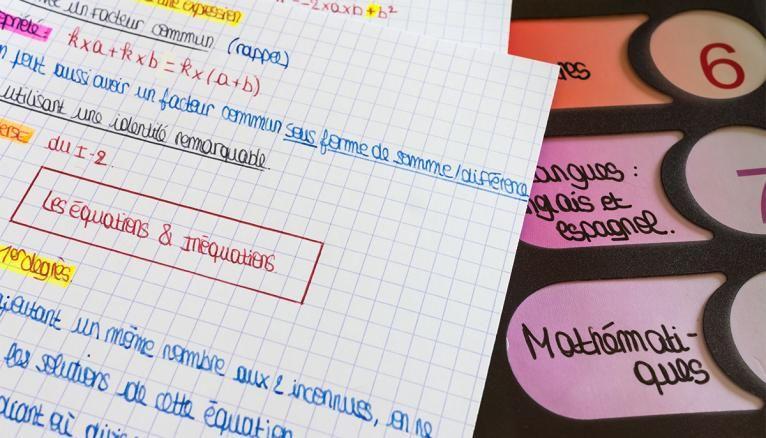 une expression
= -2xaxb + b²
un facteur commun (rappel)
k x a + k x b = k x (a + b)
peut aussi avoir un facteur commun sous forme de somme/différence
utilisant une identité remarquable.
du I-2.
Les équations & Inéquations
1er degrés.
un même nombre aux 2 inconnues, on ne
les solutions de cette équation
6
angues :
glais et
espagnol.
7
Mathémati-
ques